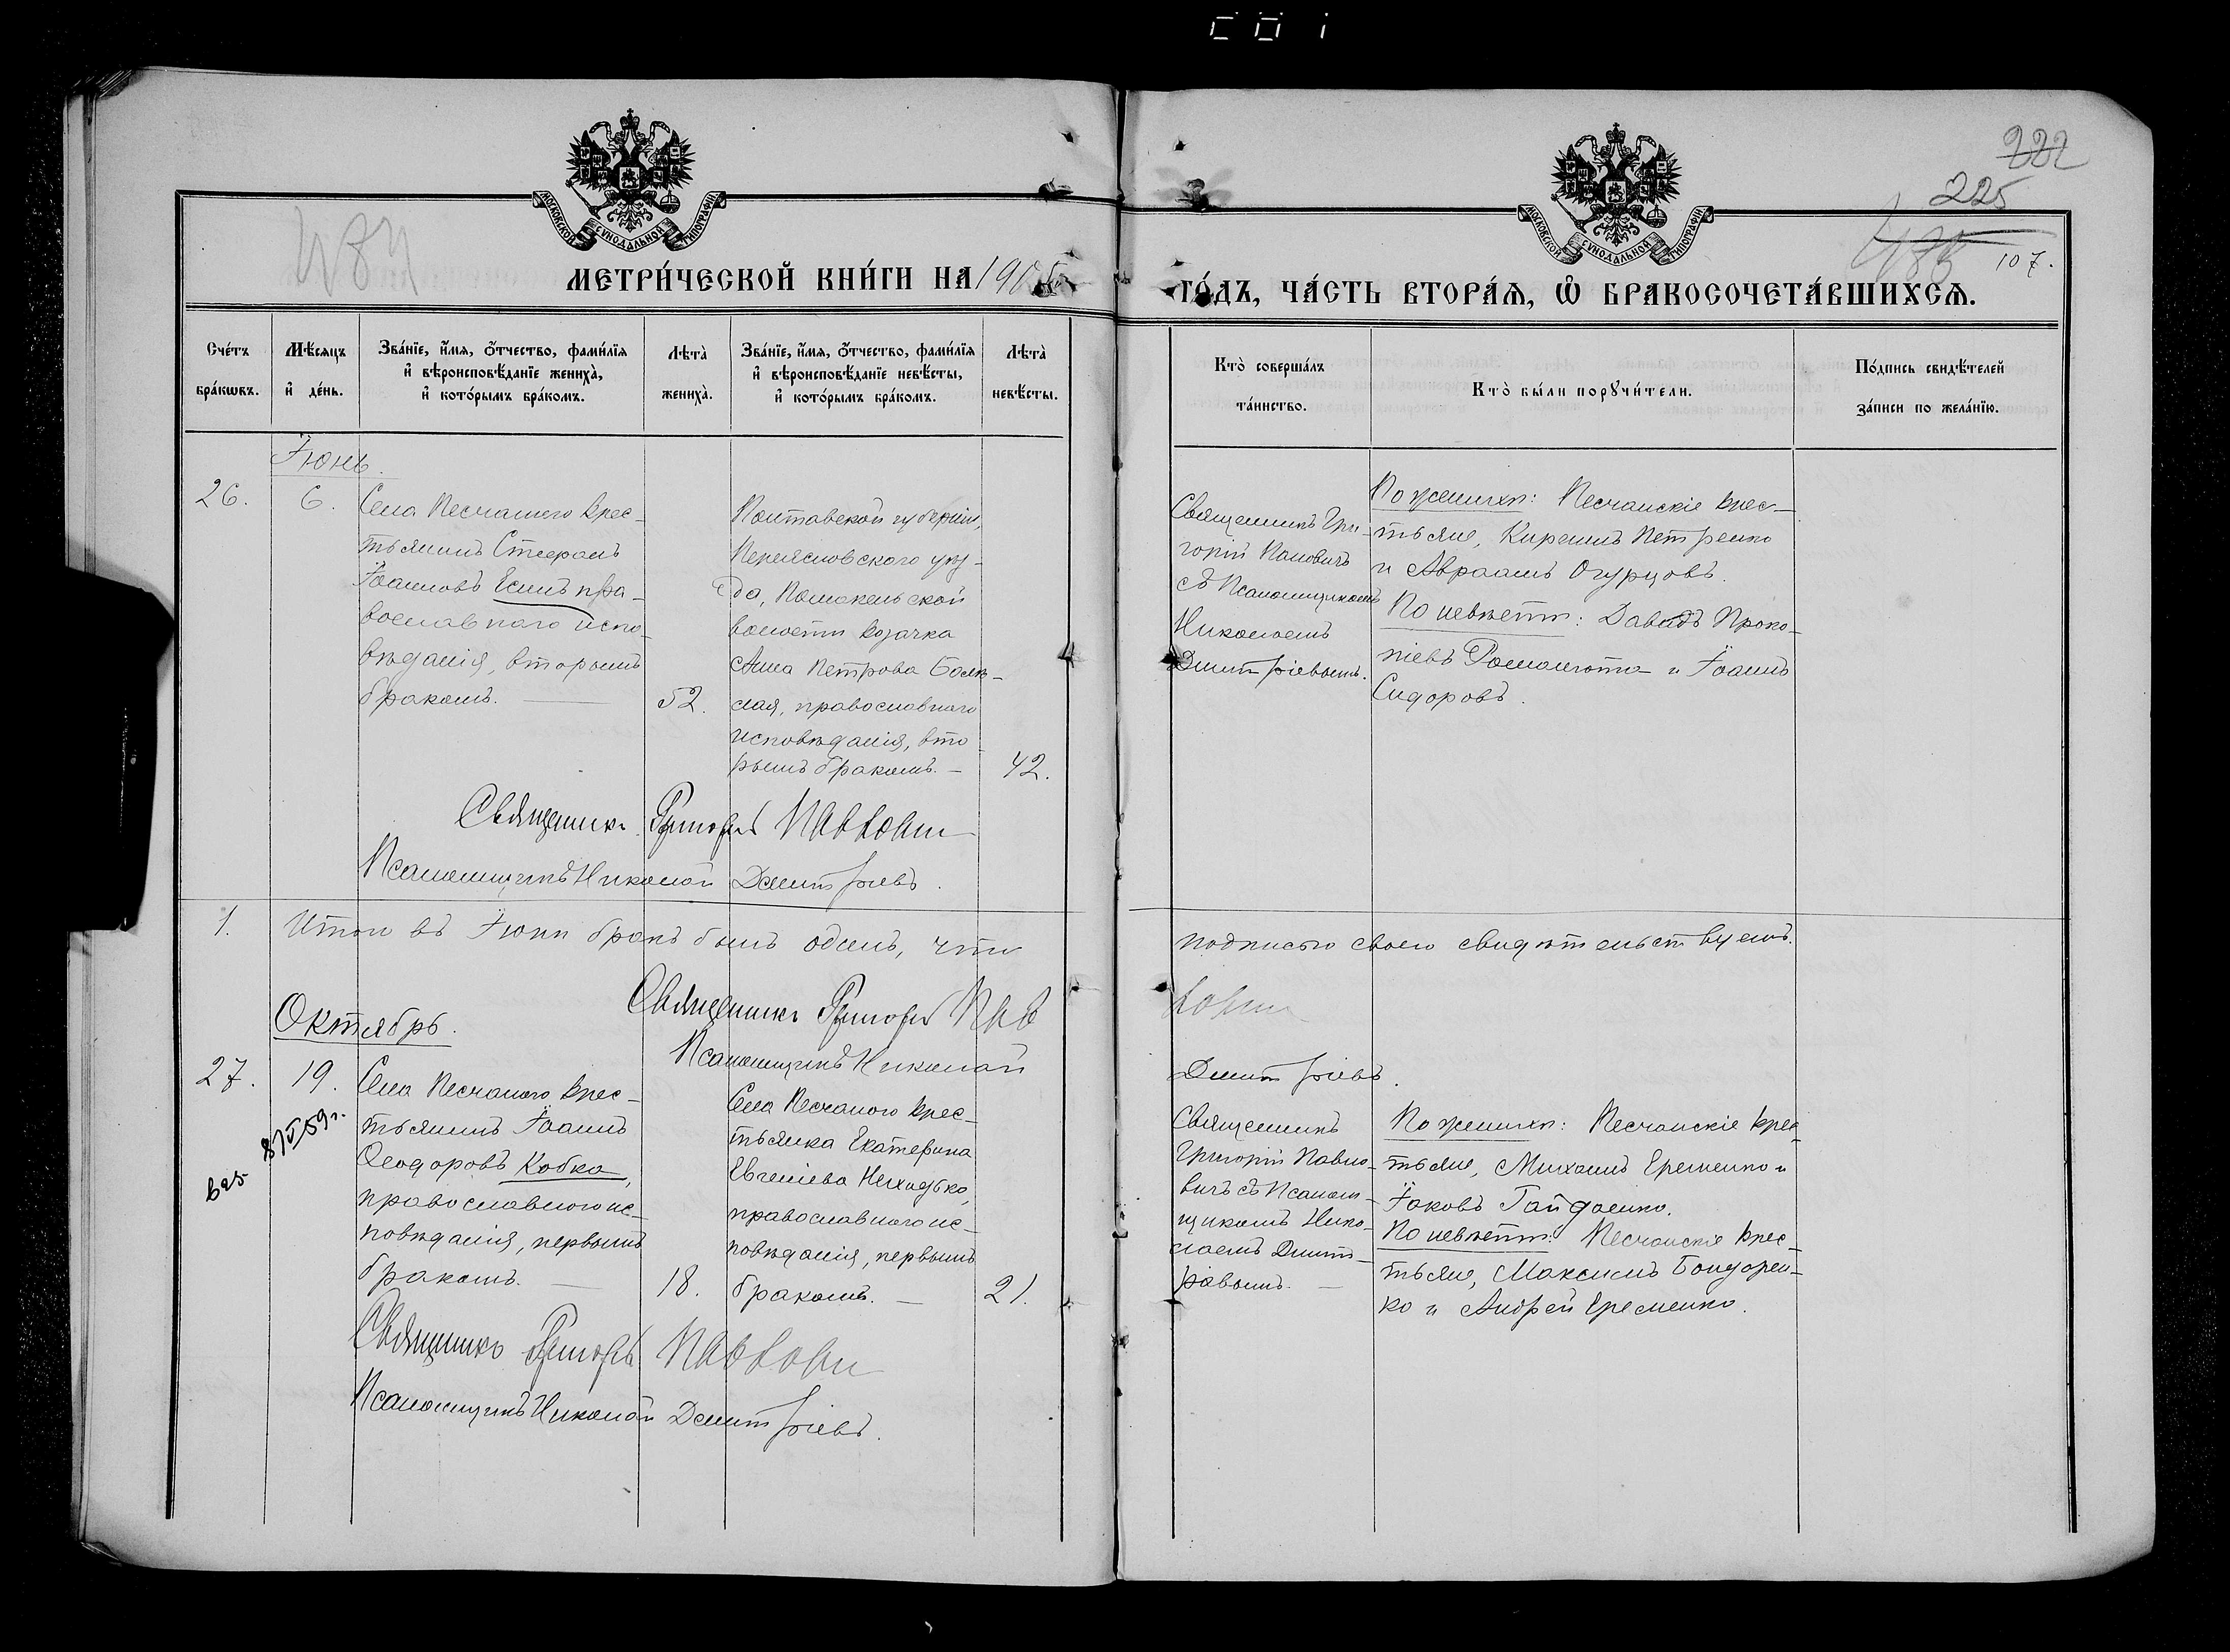 222
225
МОСКОВСКОЙ СУНОДАЛЬНОЙ ТИПОГРАФІИ
МОСКОВСКОЙ СУНОДАЛЬНОЙ ТИПОГРАФІИ
484
485
107.
МЕТРИ́ЧЕСКОЙ КНИ́ГИ НА 190
ГО́ДЪ, ЧА́СТЬ ВТОРА́Ѧ, Ѽ БРАКОСОЧЕТА́ВШИХСѦ.
Сче́тъ бра́кѡвъ.
Мѣ́сяцъ и҆ де́нь.
Зва́нїе, и҆́мя, ѻ҆́тчество, фами́лїя
и҆ вѣроисповѣ́данїе жениха̀,
и҆ кото́рымъ бра́комъ.
Лѣта̀ жениха̀.
Зва́нїе, и҆́мя, ѻ҆́тчество, фами́лїя
и҆ вѣроисповѣ́данїе невѣ́сты,
и҆ кото́рымъ бра́комъ.
Лѣта̀ невѣ́сты.
Кто̀ соверша́лъ
та́инство.
Кто̀ бы́ли порꙋчи́тели.
По́дпись свидѣ́телей
за́писи по жела́нїю.
Іюнь.
26.
6.
Села Песчаного крес-
тьянинъ Стефанъ
Іоанновъ Есипъ пра-
вославнаго испо-
вѣданія, вторымъ
бракомъ.
52.
Полтавской губерніи,
Переясловского уѣз-
да, Помокельской
волости козачка
Анна Петрова Боль-
ная, православного
исповѣданія, вто-
рымъ бракомъ.
42.
Священникъ Гри-
горій Павловичъ
съ Псаломщикомъ
Николаемъ
Дмитріевымъ.
По женихѣ: Песчанскіе крес-
тьяне, Кириллъ Петренко
и Авраамъ Огурцовъ.
По невѣстѣ: Давидъ Проко-
піевъ Романюта и Іоаннъ
Сидоровъ.
Священникъ Григорій Павловичъ
Псаломщикъ Николай Дмитріевъ.
1.
Итого въ Іюнѣ бракъ былъ одинъ, что
подписью своею свидѣтельствуемъ.
Священникъ Григорій Павловичъ
Псаломщикъ Николай Дмитріевъ.
Октябрь.
27.
19.
Села Песчаного крес-
тьянинъ Іоаннъ
Ѳеодоровъ Кобка,
православного ис-
повѣданія, первымъ
бракомъ.
18.
Села Песчаного крес-
тьянка Екатерина
Евгеніева Нехадько,
православного ис-
повѣданія, первымъ
бракомъ.
21.
Священникъ
Григорій Павло-
вичъ съ Псалом-
щикомъ Нико-
лаемъ Дмит-
ріевымъ.
По женихѣ: Песчанскіе крес-
тьяне, Михаилъ Еременко и
Іаковъ Гайдаенко.
По невѣстѣ: Песчанскіе крес-
тьяне, Максимъ Бондарен-
ко и Андрей Еременко.
Священникъ Григорій Павловичъ
Псаломщикъ Николай Дмитріевъ.